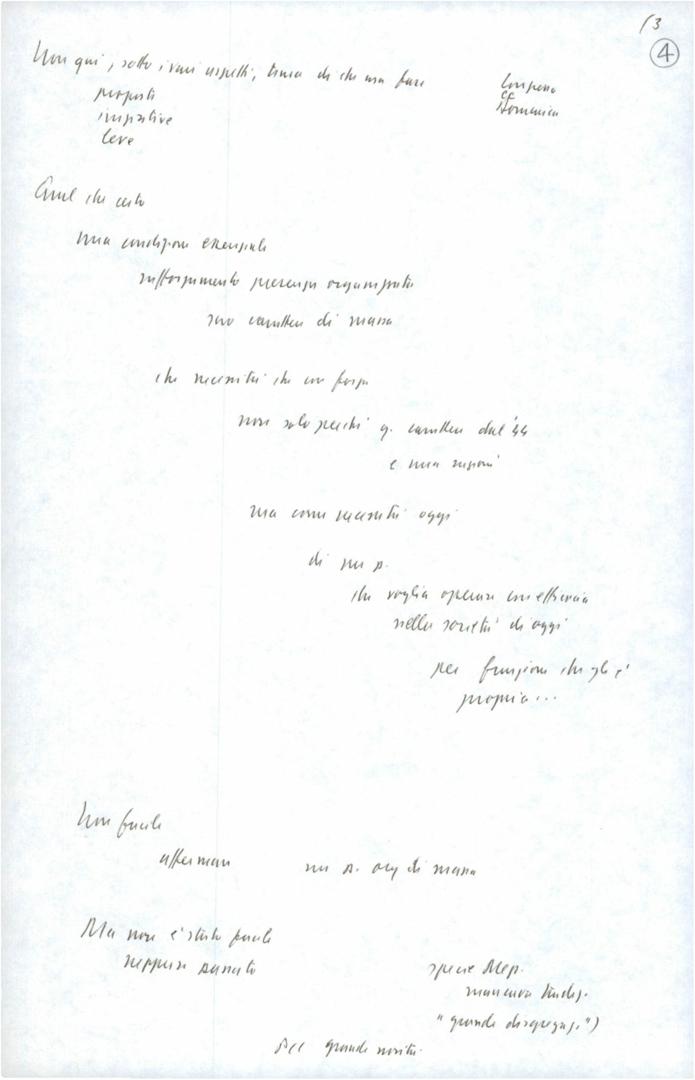 13
4
Non qui, sotto i vari aspetti, tema di che cosa fare
Longo
cf
Domenica
proposte
iniziative
leve
Quel che certo
una condizione essenziale
rafforzamento presenza organizzata
suo carattere di massa
che necessità che con forza
non solo perché q. carattere dal '44
è una ragione
ma come necessità oggi
di un p.
che voglia operare con efficacia
nella società di oggi
per funzione che gli è
propria...
Non facile
affermare un p. org di massa
Ma non è stato facile
neppure passato
specie Mep.
mancava tradiz.
"grande disgregaz.")
PCI grande novità